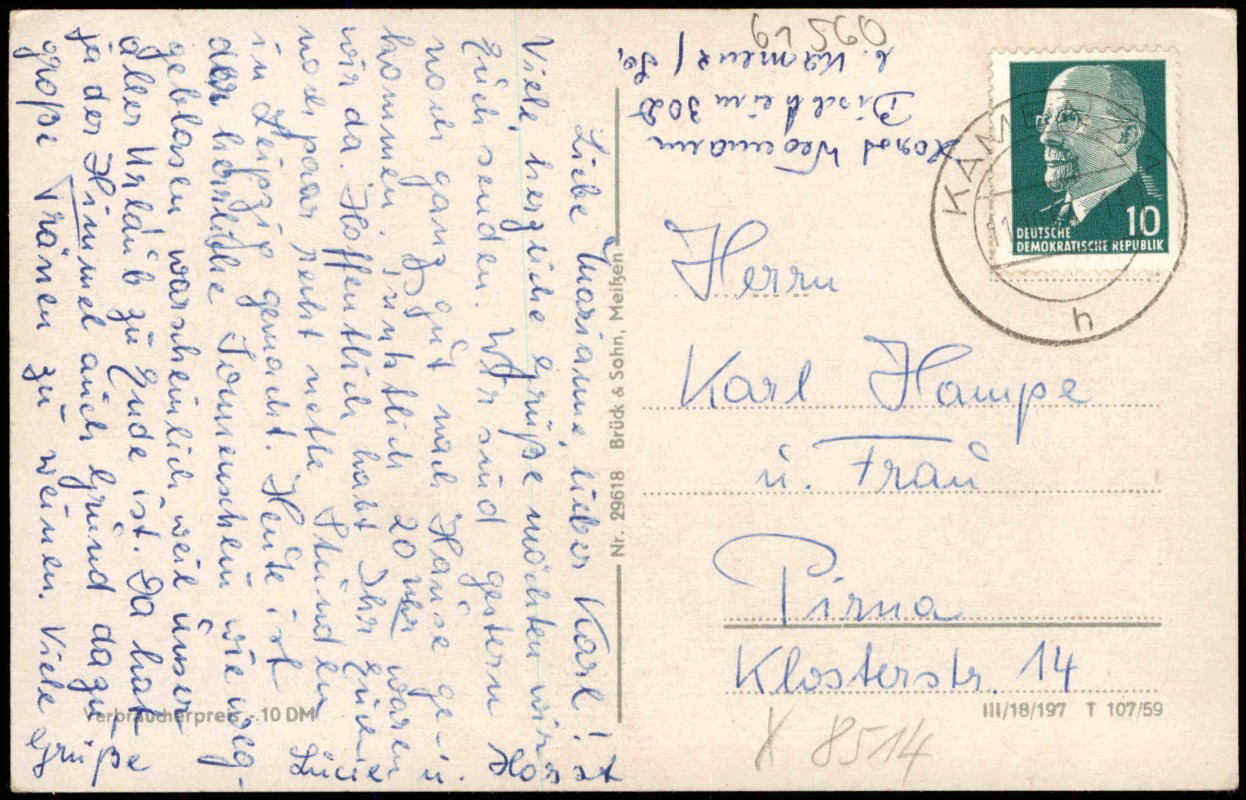 Liebe Marianne, lieber Karl!
Viele, herzliche Grüße möchten wir
Euch senden. Wir sind gestern
noch ganz gut nach Hause ge-
kommen, pünktlich 20 Uhr waren
wir da. Hoffentlich habt Ihr Euer
noch paar recht nette Stunden
in Leipzig gemacht. Heute ist
der herrliche Sonnenschein wie weg-
geblasen warscheinlich weil unser
aller Urlaub zu Ende ist. Da hat
ja der Himmel auch Grund dazu
große Tränen zu weinen. Viele Grüße
Horst
u. Lucie
Verbraucherpreis -.10 DM
Nr. 29618 Brück & Sohn, Meißen
61 560
Horst
b. Kamenz / Sa.
DEUTSCHE
DEMOKRATISCHE REPUBLIK
10
KAMENZ
h
Herrn
Karl Hampe
u. Frau
Pirna
Klosterstr. 14
III/18/197 T 107/59
X 8514